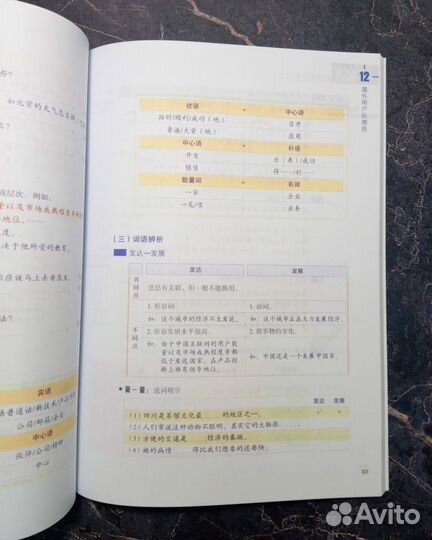 些?
如北京的天气怎么样,
之?
或层次。例如:
量以及市场成熟程度等
地位。……
度。
决于他所受的教育。
你应该马上去看医生。
法?
宾语
普通话/新技术/产品
公司/邮箱/会员
中心语
伙伴/公司/精神
中心
12
状语 + 中心语
按时/顺利/成功(地) 召开
普遍/大量(地) 应用
中心语 + 补语
开发 出(来)/成功
销售 得……/到……
数量词 + 名词
一家 企业
一笔/项 业务
(三)词语辨析
发达—发展
发达 发展
共同点 意思有关联,但一般不能换用。
不同点
1. 形容词。 1. 动词。
如:这个城市的经济不太发达。 如:这个城市正在大力发展经济。
2. 形容发展水平很高。 2. 指事物的变化。
如:由于中国互联网的用户数量以及市场成熟程度等都低于发达国家,在产品创新上难有领导地位。 如:中国还是一个发展中国家。
练一练:选词填空
发达 发展
(1)四川是茶馆文化最____的地区之一。 ✓ ×
(2)人们常说这种动物不聪明,其实它的大脑很____。
(3)方便的交通是____经济的基础。
(4)她的病情____得比我们想象的还要快。
101
Avito